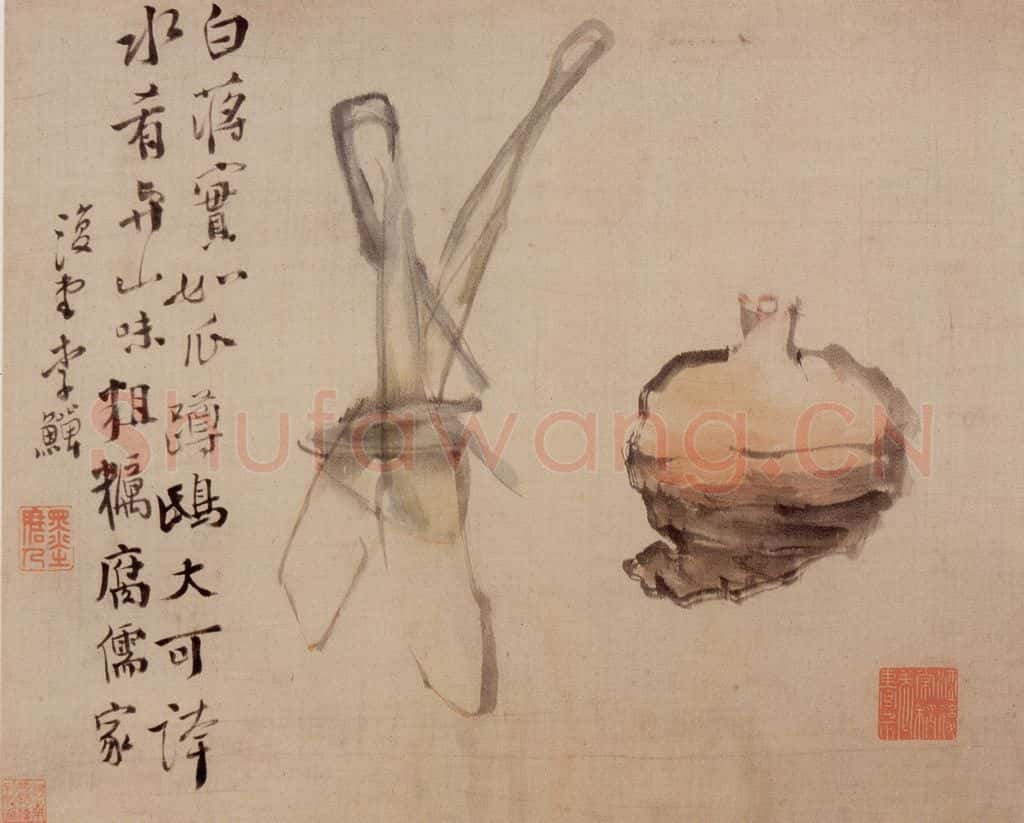 白蔣實如瓜蹲鴟大可誇
水肴与山味粗糲腐儒家
復堂李鱓
Shufawang.CN